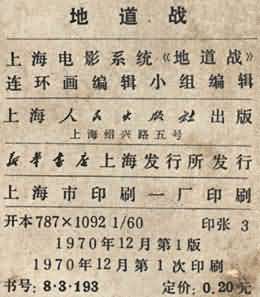 地道战
上海电影系统《地道战》
连环画编辑小组编辑
上海人民出版社出版
上海绍兴路五号
新华书店上海发行所发行
上海市印刷一厂印刷
开本 787×1092 1/60 印张 3
1970年12月第1版
1970年12月第1次印刷
书号: 8·3·193 定价: 0.20元